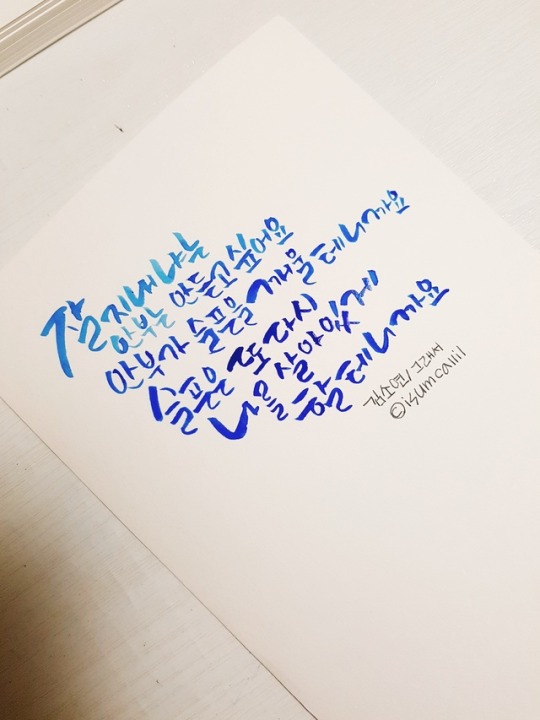 잘지내냐는
안부는 안듣고싶어요
안부가 슬픔을 깨울테니까요
슬픔은 또다시
나를 살아있게
할테니까요
김소연/그래서
©isumcalli